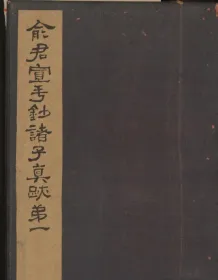 俞君宣手鈔諸子真跡弟一